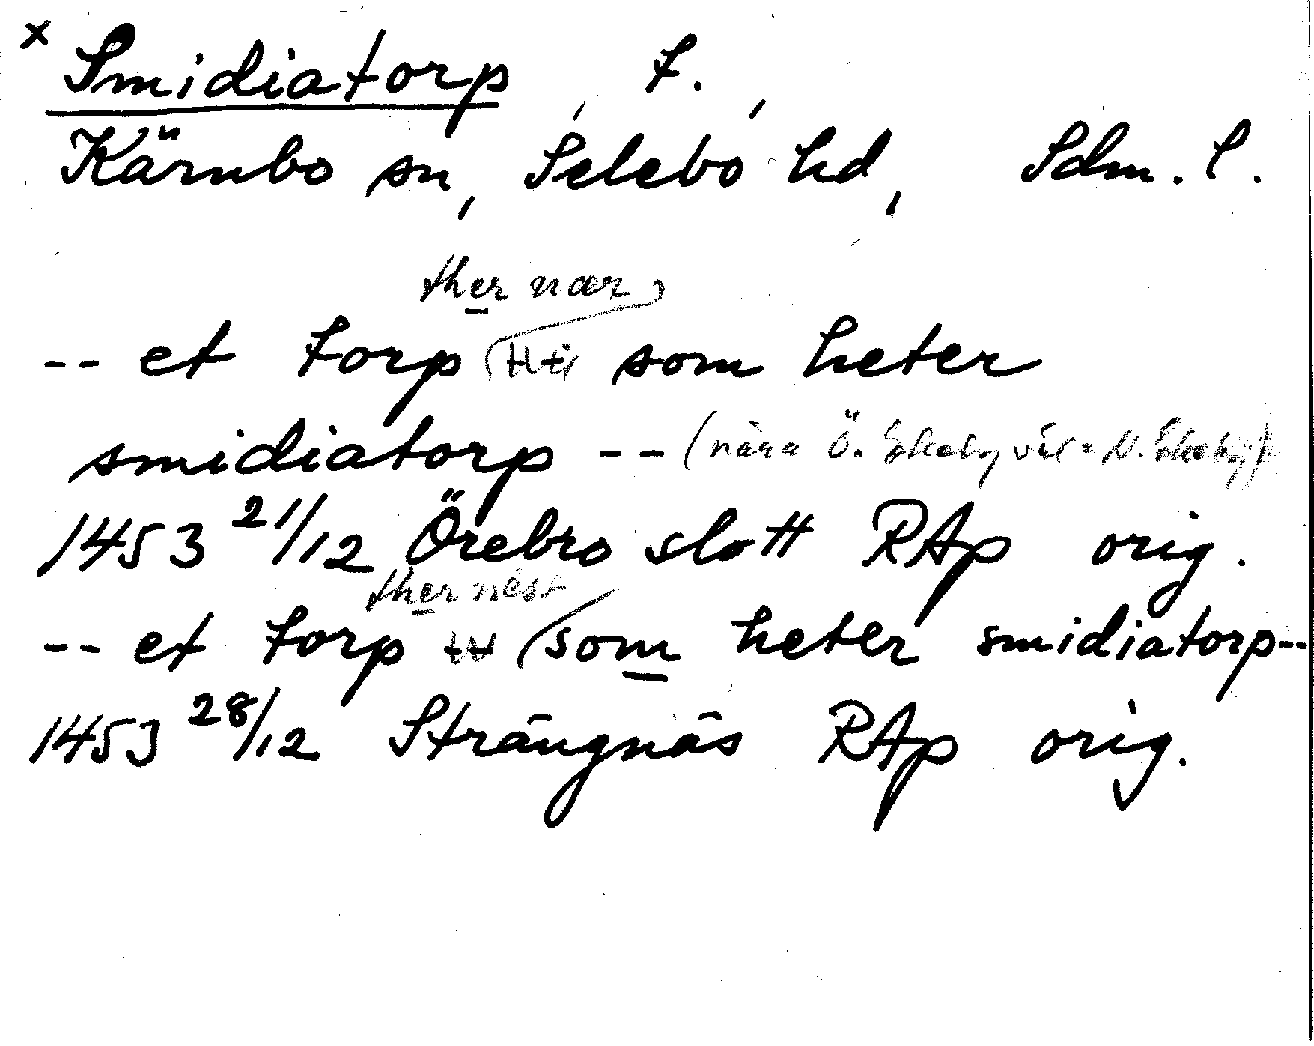 x Smidiatorp, t.,
Kärnbo sn, Selebo hd, Sdm. l.
ther nær
-- et torp som heter
smidiatorp -- (nära Ö. Ekeby N. Ekeby)
1453 21/12 Örebro slott RAp orig.
ther nest
-- et torp som heter smidiatorp --
1453 28/12 Strängnäs RAp orig.